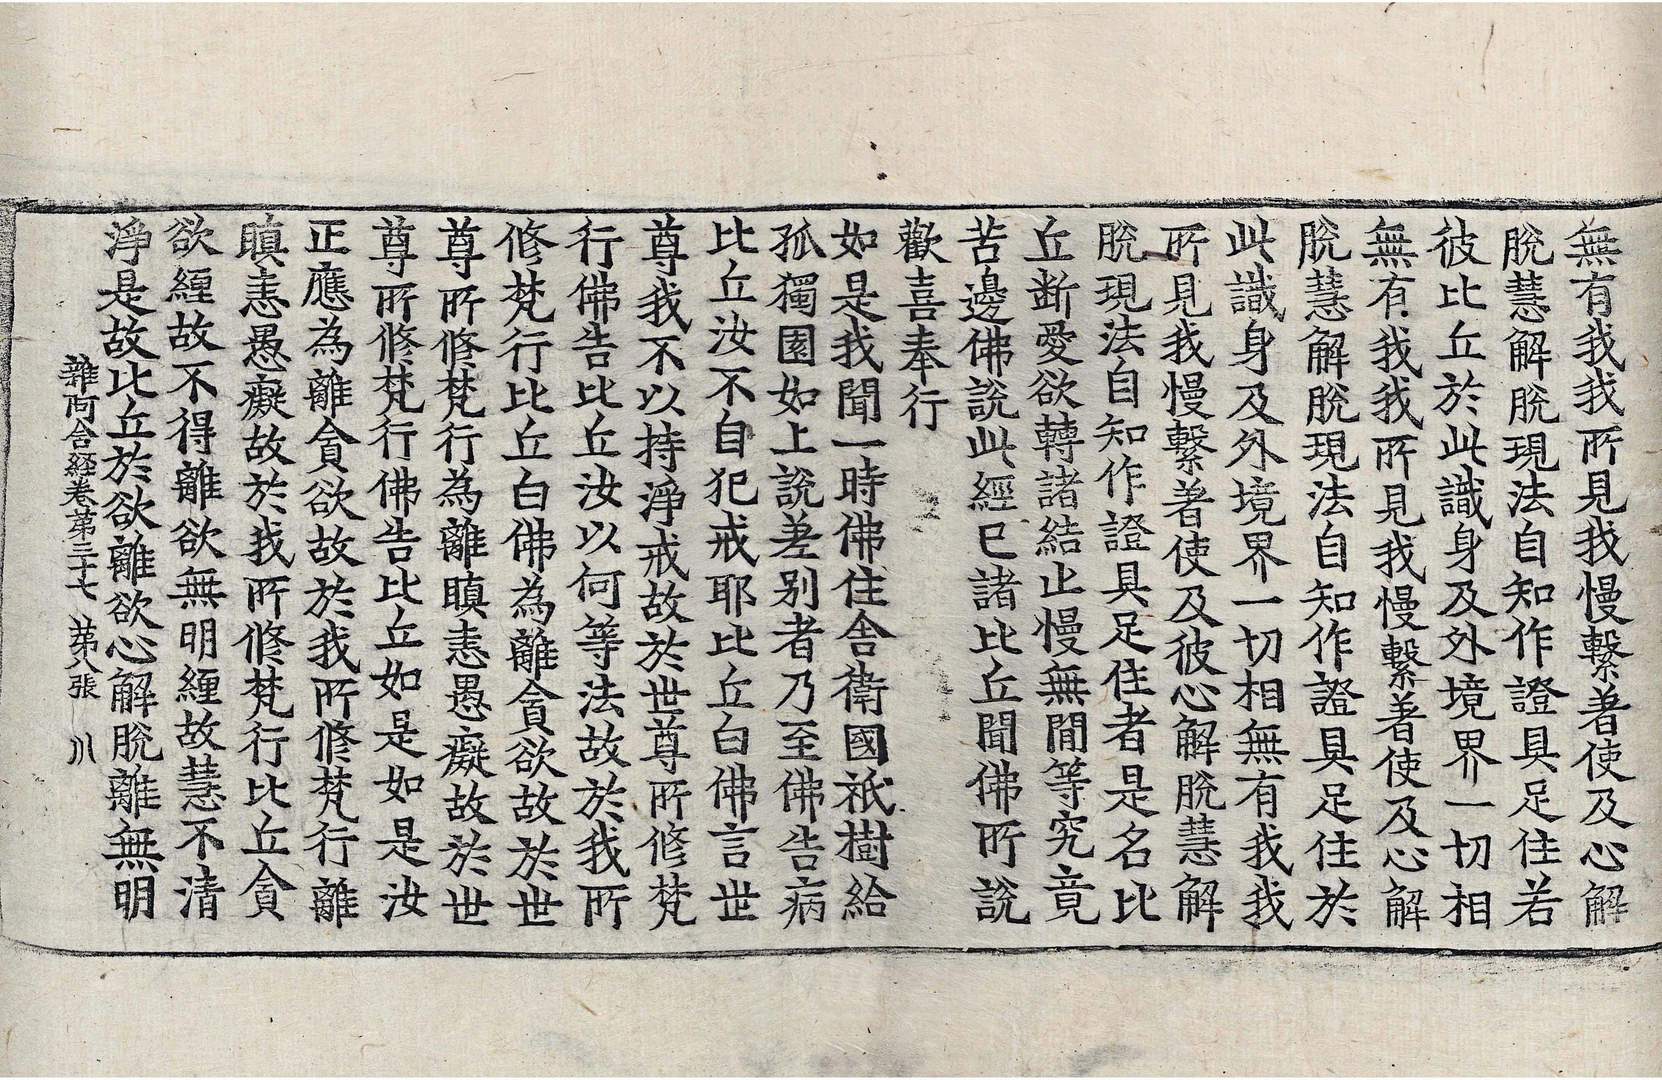 無有我我所見我慢繫著使及心解
脫慧解脫現法自知作證具足住若
彼比丘於此識身及外境界一切相
無有我我所見我慢繫著使及心解
脫慧解脫現法自知作證具足住於
此識身及外境界一切相無有我我
所見我慢繫著使及彼心解脫慧解
脫現法自知作證具足住者是名比
丘断愛欲轉諸結止慢無閒等究竟
苦邊佛說此經已諸比丘聞佛所說
歡喜奉行
如是我聞一時佛住舍衛國祇樹給
孤獨園如上說差别者乃至佛告病
比丘汝不自犯戒耶比丘白佛言世
尊我不以持淨戒故於世尊所修梵
行佛告比丘汝以何等法故於我所
修梵行比丘白佛為離貪欲故於世
尊所修梵行為離瞋恚愚癡故於世
尊所修梵行佛告比丘如是如是汝
正應為離貪欲故於我所修梵行離
瞋恚愚癡故於我所修梵行比丘貪
欲纏故不得離欲無明纏故慧不清
淨是故比丘於欲離欲心解脫離無明
雜阿含経卷苐三十七 苐八張 川